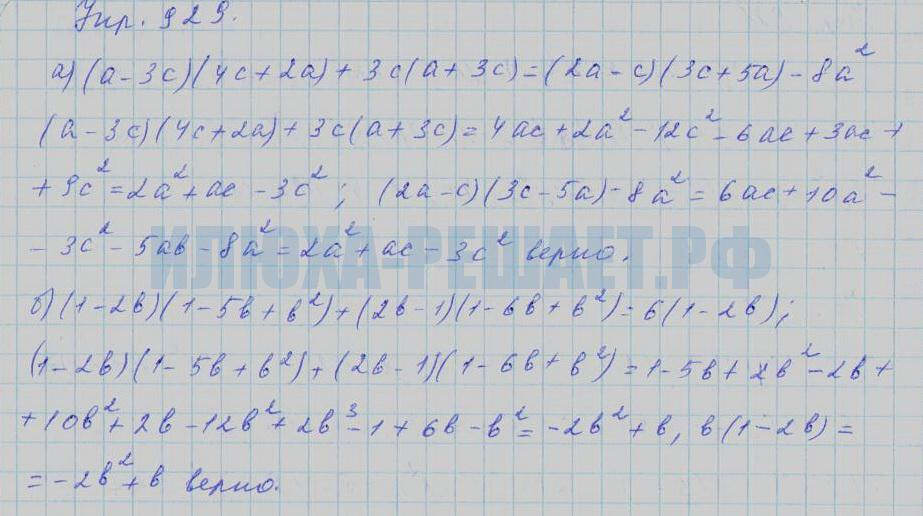 Упр. 929.
а) (a-3c)(4c+2a)+3c(a+3c)=(2a-c)(3c+5a)-8a²
(a-3c)(4c+2a)+3c(a+3c)=4ac+2a²-12c²-6ac+3ac+
+9c²=2a²+ac-3c²; (2a-c)(3c-5a)-8a²=6ac+10a²-
-3c²-5ab-8a²=2a²+ac-3c² верно.
ИЛЮХА-РЕШАЕТ.РФ
б) (1-2b)(1-5b+b²)+(2b-1)(1-6b+b²)=b(1-2b);
(1-2b)(1-5b+b²)+(2b-1)(1-6b+b²)=1-5b+2b²-2b+
+10b²+2b-12b²+2b³-1+6b-b²=-2b²+b, b(1-2b)=
=-2b²+b верно.